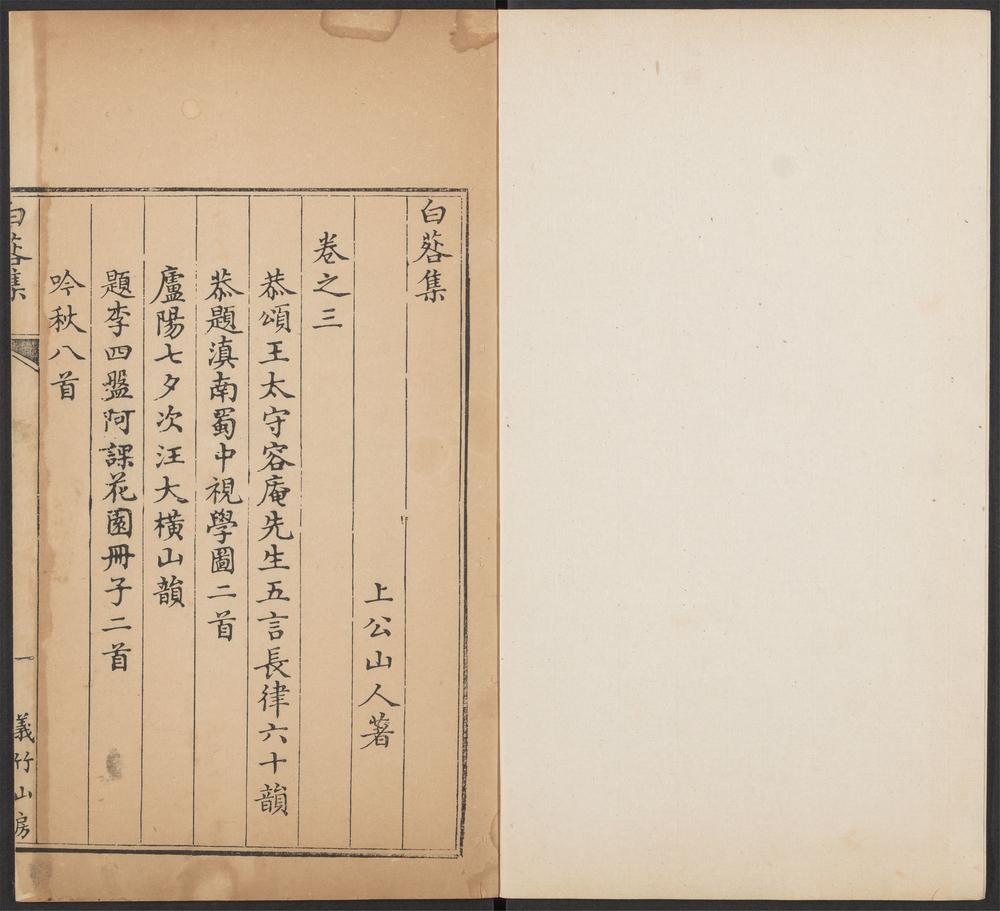 白菭集
上公山人著
卷之三
恭頌王太守容庵先生五言長律六十韻
恭題滇南蜀中視學圖二首
廬陽七夕次汪大橫山韻
題李四盤阿課花園冊子二首
吟秋八首
白菭集
一
義竹山房